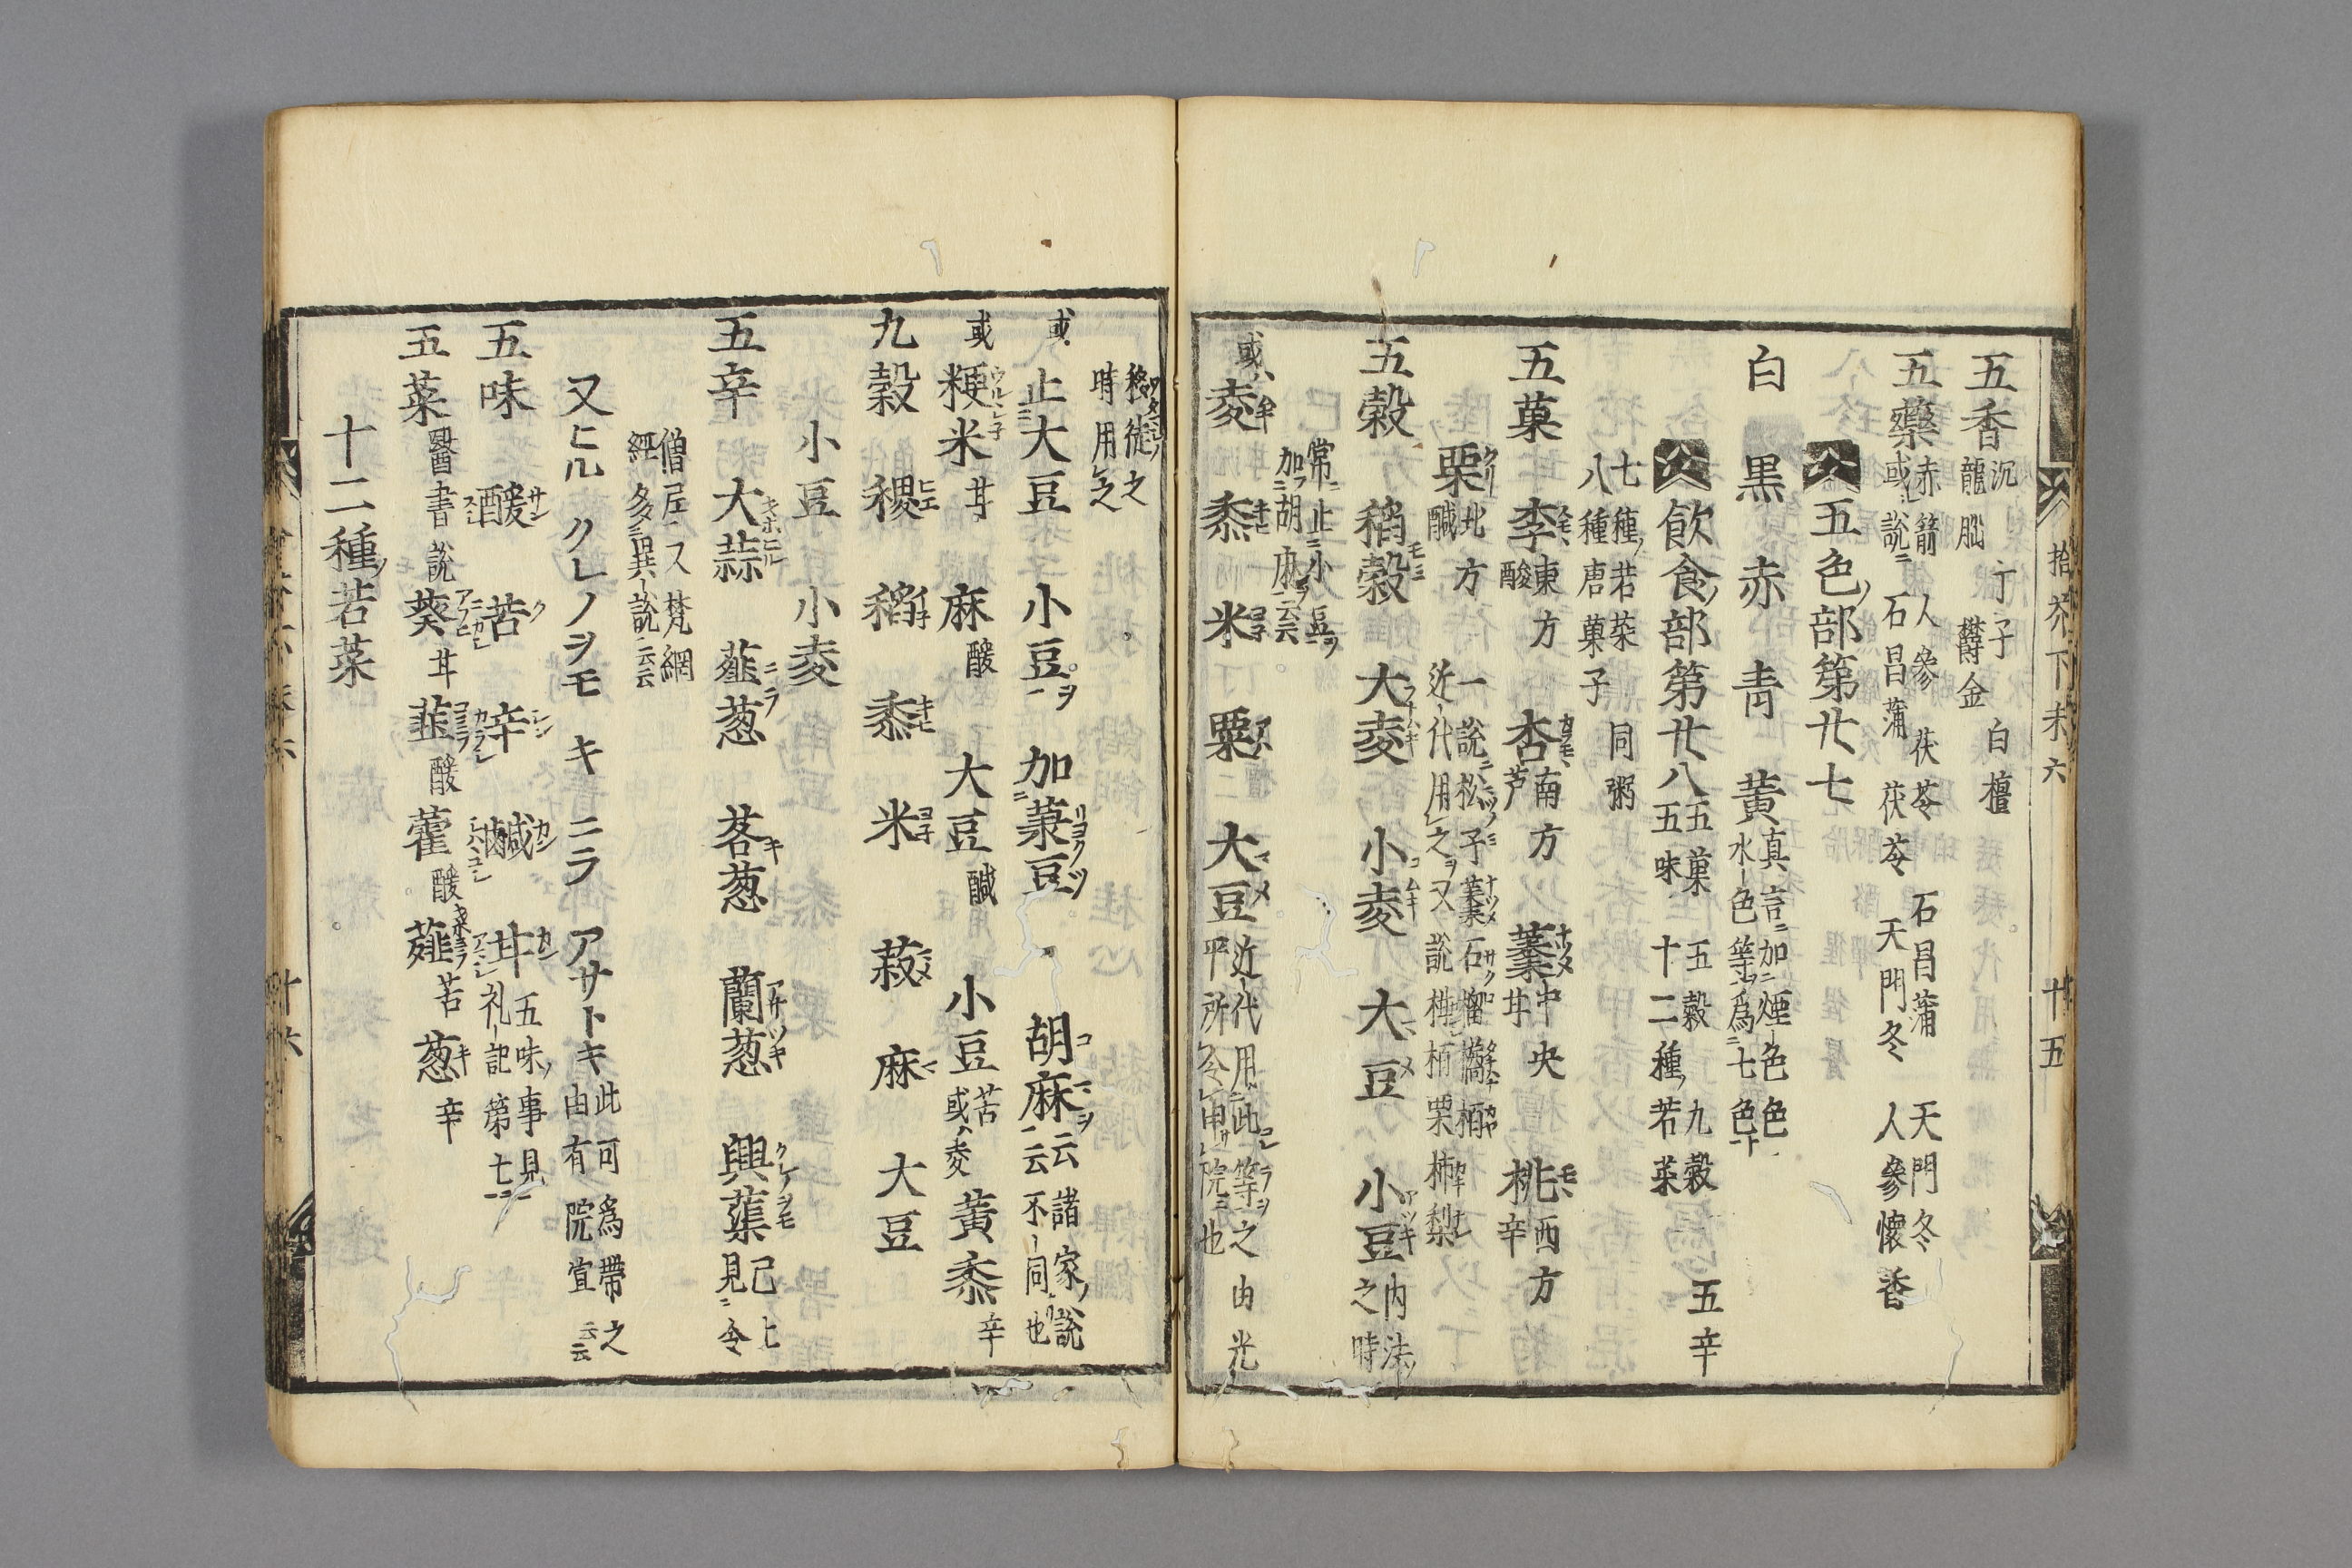 拾芥下末六 十五
五香 沉 丁子 白檀
龍腦 欝金
五藥 赤箭 人參 茯苓 石昌蒲 天門冬
或說ニ 石昌蒲 茯苓 天門冬 人參 懷香
五色ノ部第廿七
白 黒 赤 青 黃 真言ニ加ニ煙色色
水色等ヲ爲ニ七色ト
飲食ノ部第廿八 五菓 五穀 九穀 五辛
五味 十二種ノ若菜
七種ノ若菜 同粥
八種唐菓子
五菓 李 東方 酸 杏 南方 苦 棗 中央 甘 桃 西方 辛
栗 北方 鹹
一說ニ松子 棗 石榴 柏
近代用之ヲ又說 梅 栢 栗 柿 梨
五穀 稻穀 大麥 小麥 大豆 小豆 内法ノ
之時
常ニ止ニ小豆ヲ
加フ胡麻ヲ云云
或ハ 麥 黍 米 粟 大豆 近代用ニ此等ヲ之由光
平所令申院ニ也
之
時用之
或 止大豆 小豆ヲ 加菉豆 胡麻ヲ云云 諸家ノ說
不同也
或 粳米 甘 麻 酸 大豆 鹹 小豆 苦 黃黍 辛
或ハ麥
九穀 稷 稻 黍 米 菽 麻 大豆
小豆 小麥
五辛 大蒜 薤葱 茖葱 蘭葱 興蕖 已上
見ニ令
僧尼ニ又梵網
經多異說云云
又ヒル クレノヲモ キ ニラ アサトキ 此可爲帶之
由有院宣云云
五味 酸 苦 辛 鹹 甘 五味ノ事見
礼記第七ニ
五菜 醫書說 葵 甘 韮 酸 藿 酸 薤 苦 葱 辛
十二種ノ若菜